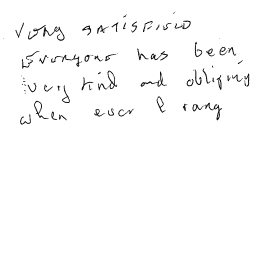 Very satisfied
Everyone has been
very kind and obliging
when ever I rang